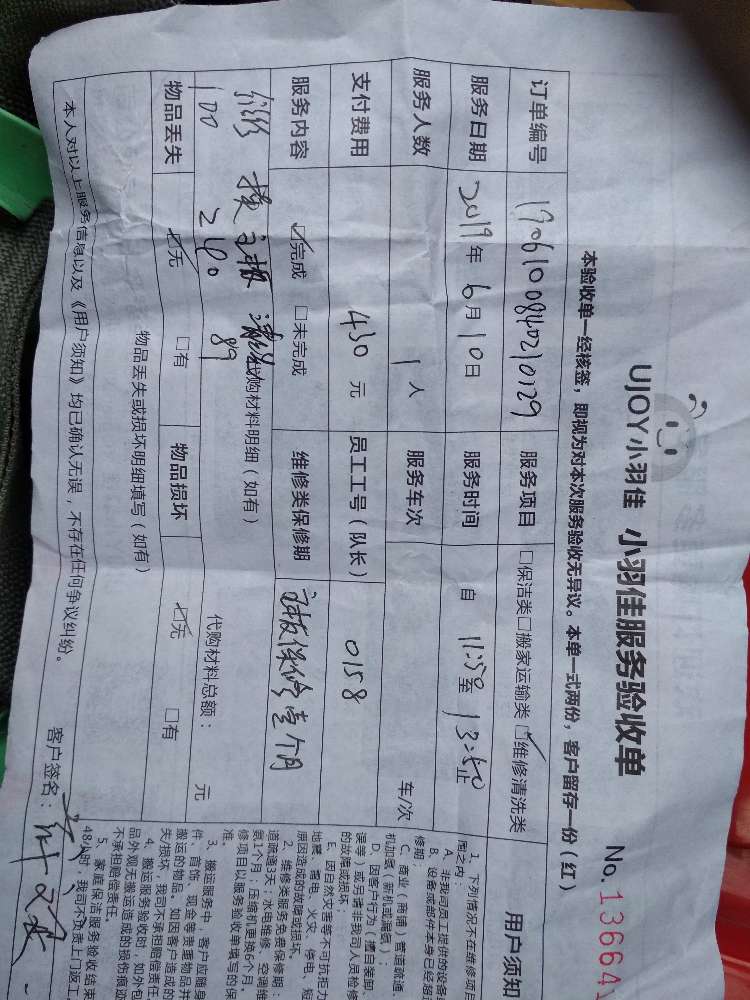 UJOY小羽佳 小羽佳服务验收单 No.13664
本验收单一经核签，即视为对本次服务验收无异议。本单一式两份，客户留存一份（红）
订单编号 1906100840210129 服务项目 □保洁类□搬家运输类☑维修清洗类
服务日期 2019年6月10日 服务时间 自 11:50至 13:50止
服务人数 1人 服务车次 车/次
支付费用 430元 员工工号（队长） 0158
服务内容 ☑完成 □未完成 维修类保修期 主板保修壹个月
换主板 代购材料明细（如有） 代购材料总额： 元
100 240 89
物品丢失 ☑无 □有 物品损坏 ☑无 □有
物品丢失或损坏明细填写（如有）
本人对以上服务信息以及《用户须知》均已确认无误，不存在任何争议纠纷。
客户签名：
用户须知
1、下列情况不在维修项目
围之内：
A、非我司员工提供的设备
B、设备或部件本身已经超
修期；
C、商业（商铺）管道疏通、
机加氨（新机或漏氨）；
D、因客户行为（擅自装卸、
误等）或另请非我司人员检修
的故障或损坏；
E、因自然灾害等不可抗拒力
地震、雷电、火灾、停电、短
原因造成的故障或损坏。
2、维修类服务免费保修期：
道疏通3天；水电维修、空调维
氨1个月，压缩机更换6个月，
修项目以服务验收单填写的保
准。
3、搬运服务中，客户应随身
件、首饰、现金等贵重物品并
搬运的物品。如因客户造成的
失/损坏，我司不承担赔偿责任
4、搬运服务验收时，如外包
品外观无搬运造成的损伤痕迹
不承担赔偿责任。
5、家庭保洁服务验收结束
48小时，我司不负责上门返工